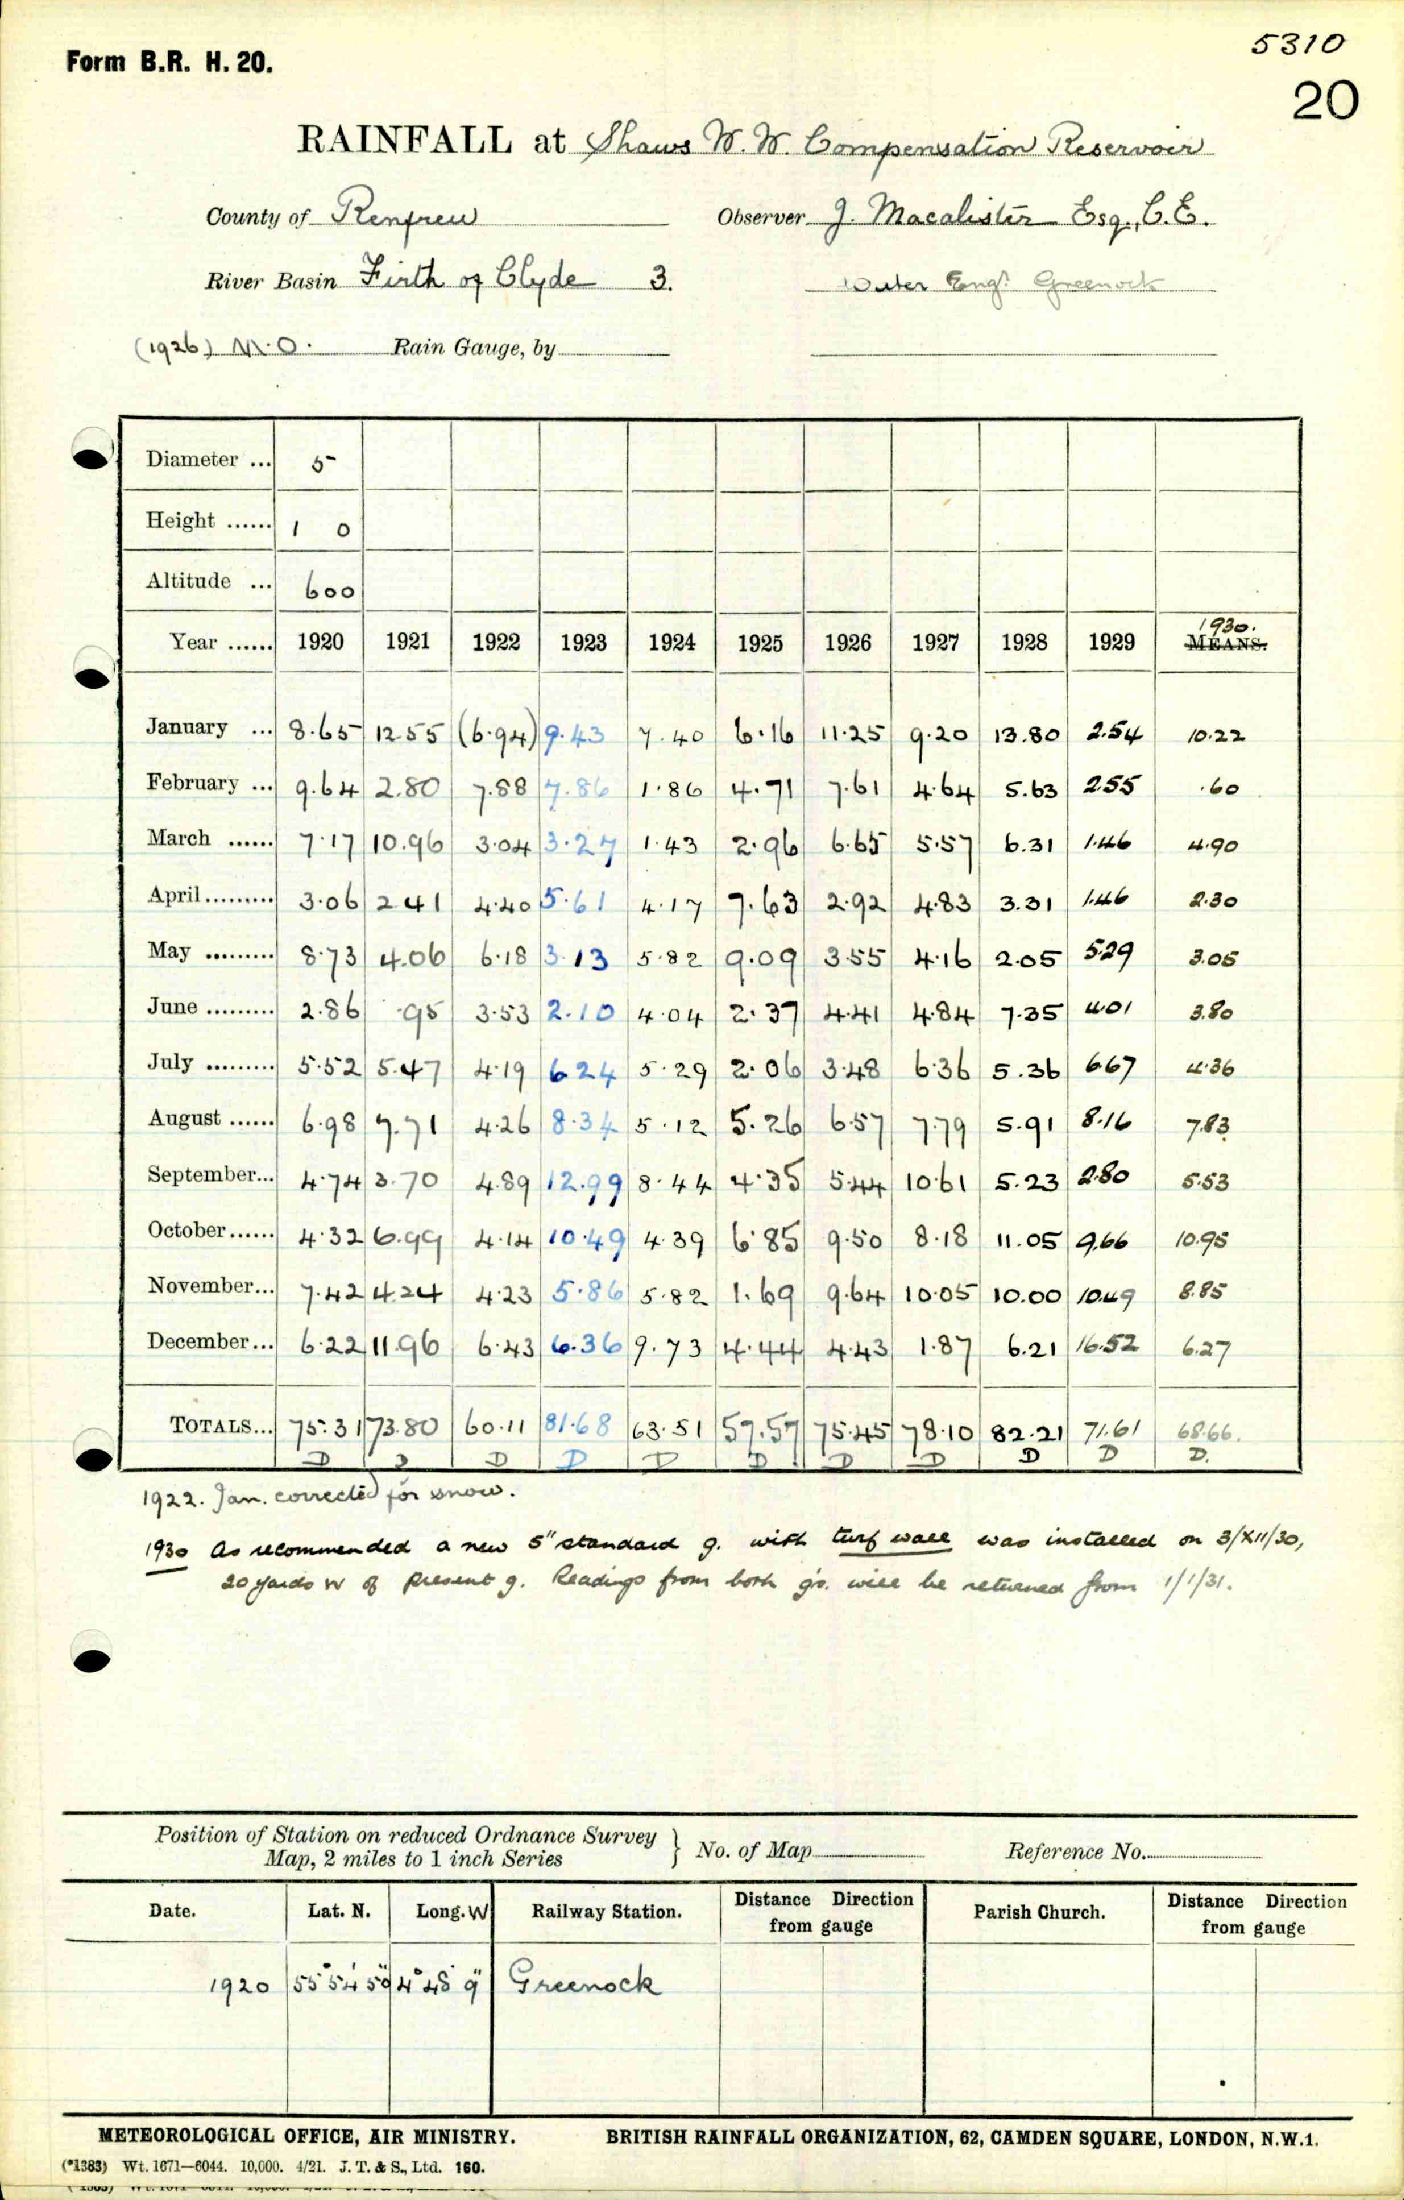 5310
Form B.R. H. 20.
20
RAINFALL at Shaws W. W. Compensation Reservoir
County of Renfrew Observer J. Macalister Esq., C.E.
River Basin Firth of Clyde 3. Water Engr. Greenock
(1926) M.O. Rain Gauge, by
Diameter ... 5
Height ...... 1 0
Altitude ... 600
1930.
Year ...... 1920 1921 1922 1923 1924 1925 1926 1927 1928 1929 MEANS.
January ... 8.65 12.55 (6.94) 9.43 7.40 6.16 11.25 9.20 13.80 2.54 10.22
February ... 9.64 2.80 7.88 7.86 1.86 4.71 7.61 4.64 5.63 2.55 .60
March ...... 7.17 10.96 3.04 3.27 1.43 2.96 6.65 5.57 6.31 1.46 4.90
April......... 3.06 2.41 4.40 5.61 4.17 7.63 2.92 4.83 3.31 1.46 2.30
May ......... 8.73 4.06 6.18 3.13 5.82 9.09 3.55 4.16 2.05 5.29 3.05
June ......... 2.86 .95 3.53 2.10 4.04 2.37 4.41 4.84 7.35 4.01 3.80
July ......... 5.52 5.47 4.19 6.24 5.29 2.06 3.48 6.36 5.36 6.67 4.36
August ...... 6.98 7.71 4.26 8.34 5.12 5.26 6.57 7.79 5.91 8.16 7.83
September... 4.74 3.70 4.89 12.99 8.44 4.35 5.44 10.61 5.23 2.80 5.53
October...... 4.32 6.99 4.14 10.49 4.39 6.85 9.50 8.18 11.05 9.66 10.95
November... 7.42 4.24 4.23 5.86 5.82 1.69 9.64 10.05 10.00 10.49 8.85
December... 6.22 11.96 6.43 6.36 9.73 4.44 4.43 1.87 6.21 16.52 6.27
TOTALS... 75.31 73.80 60.11 81.68 63.51 57.57 75.45 78.10 82.21 71.61 68.66.
D D D D D D D D D D D.
1922. Jan. corrected for snow.
1930 As recommended a new 5" standard g. with turf wall was installed on 3/XII/30,
20 yards W of present g. Readings from both g's. will be returned from 1/1/31.
Position of Station on reduced Ordnance Survey
Map, 2 miles to 1 inch Series } No. of Map Reference No.
Date. Lat. N. Long. W Railway Station. Distance Direction from gauge Parish Church. Distance Direction from gauge
1920 55° 54' 50" 4° 48' 9" Greenock
METEOROLOGICAL OFFICE, AIR MINISTRY. BRITISH RAINFALL ORGANIZATION, 62, CAMDEN SQUARE, LONDON, N.W.1.
(*1383) Wt. 1671—6044. 10,000. 4/21. J. T. & S., Ltd. 160.